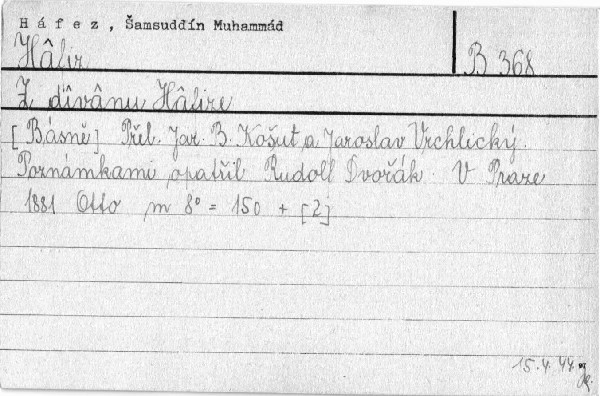 Háfez, Šamsuddín Muhammád
Hâfiz
B 368
Z dîvânu Hâfize
[Básně] Přel. Jar. B. Košut a Jaroslav Vrchlický.
Poznámkami opatřil Rudolf Dvořák. V Praze
1881 Otto m 8° = 150 + [2]
15.4.44